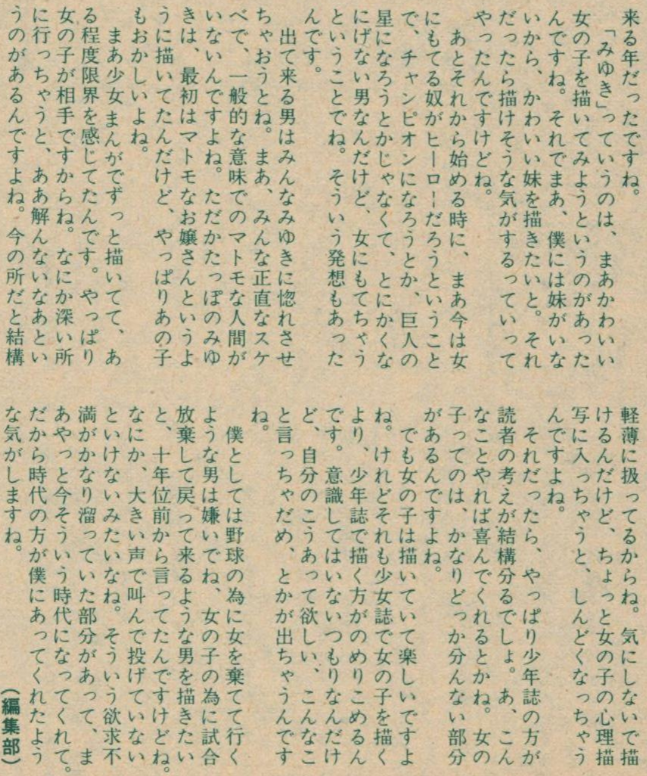 来る年だったですね。
「みゆき」っていうのは、まあかわいい
女の子を描いてみようというのがあった
んですね。それでまあ、僕には妹がいな
いから、かわいい妹を描きたいと。それ
だったら描けそうな気がするっていって
やったんですけどね。
あとそれから始める時に、まあ今は女
にもてる奴がヒーローだろうということ
で、チャンピオンになろうとか、巨人の
星になろうとかじゃなくて、とにかくな
にげない男なんだけど、女にもてちゃう
ということでね。そういう発想もあった
んです。
出て来る男はみんなみゆきに惚れさせ
ちゃおうとね。まあ、みんな正直なスケ
べで、一般的な意味でのマトモな人間が
いないんですよね。ただかたっぽのみゆ
きは、最初はマトモなお嬢さんというよ
うに描いてたんだけど、やっぱりあの子
もおかしいよね。
まあ少女まんがでずっと描いてて、あ
る程度限界を感じてたんです。やっぱり
女の子が相手ですからね。なにか深い所
に行っちゃうと、ああ解んないなあとい
うのがあるんですよね。今の所だと結構
軽薄に扱ってるからね。気にしないで描
けるんだけど、ちょっと女の子の心理描
写に入っちゃうと、しんどくなっちゃう
んですよね。
それだったら、やっぱり少年誌の方が
読者の考えが結構分るでしょ。あ、こん
なことやれば喜んでくれるとかね。女の
子ってのは、かなりどっか分んない部分
があるんですよね。
でも女の子は描いていて楽しいですよ
ね。けれどそれも少女誌で女の子を描く
より、少年誌で描く方がのめりこめるん
です。意識してはいないつもりなんだけ
ど、自分のこうあって欲しい、こんなこ
と言っちゃだめ、とかが出ちゃうんです
ね。
僕としては野球の為に女を棄てて行く
ような男は嫌いでね、女の子の為に試合
放棄して戻って来るような男を描きたい
と、十年位前から言ってたんですけどね。
なにか、大きい声で叫んで投げていない
といけないみたいなね。そういう欲求不
満がかなり溜っていた部分があって、ま
あやっと今そういう時代になってくれて。
だから時代の方が僕にあってくれたよう
な気がしますね。
(編集部)